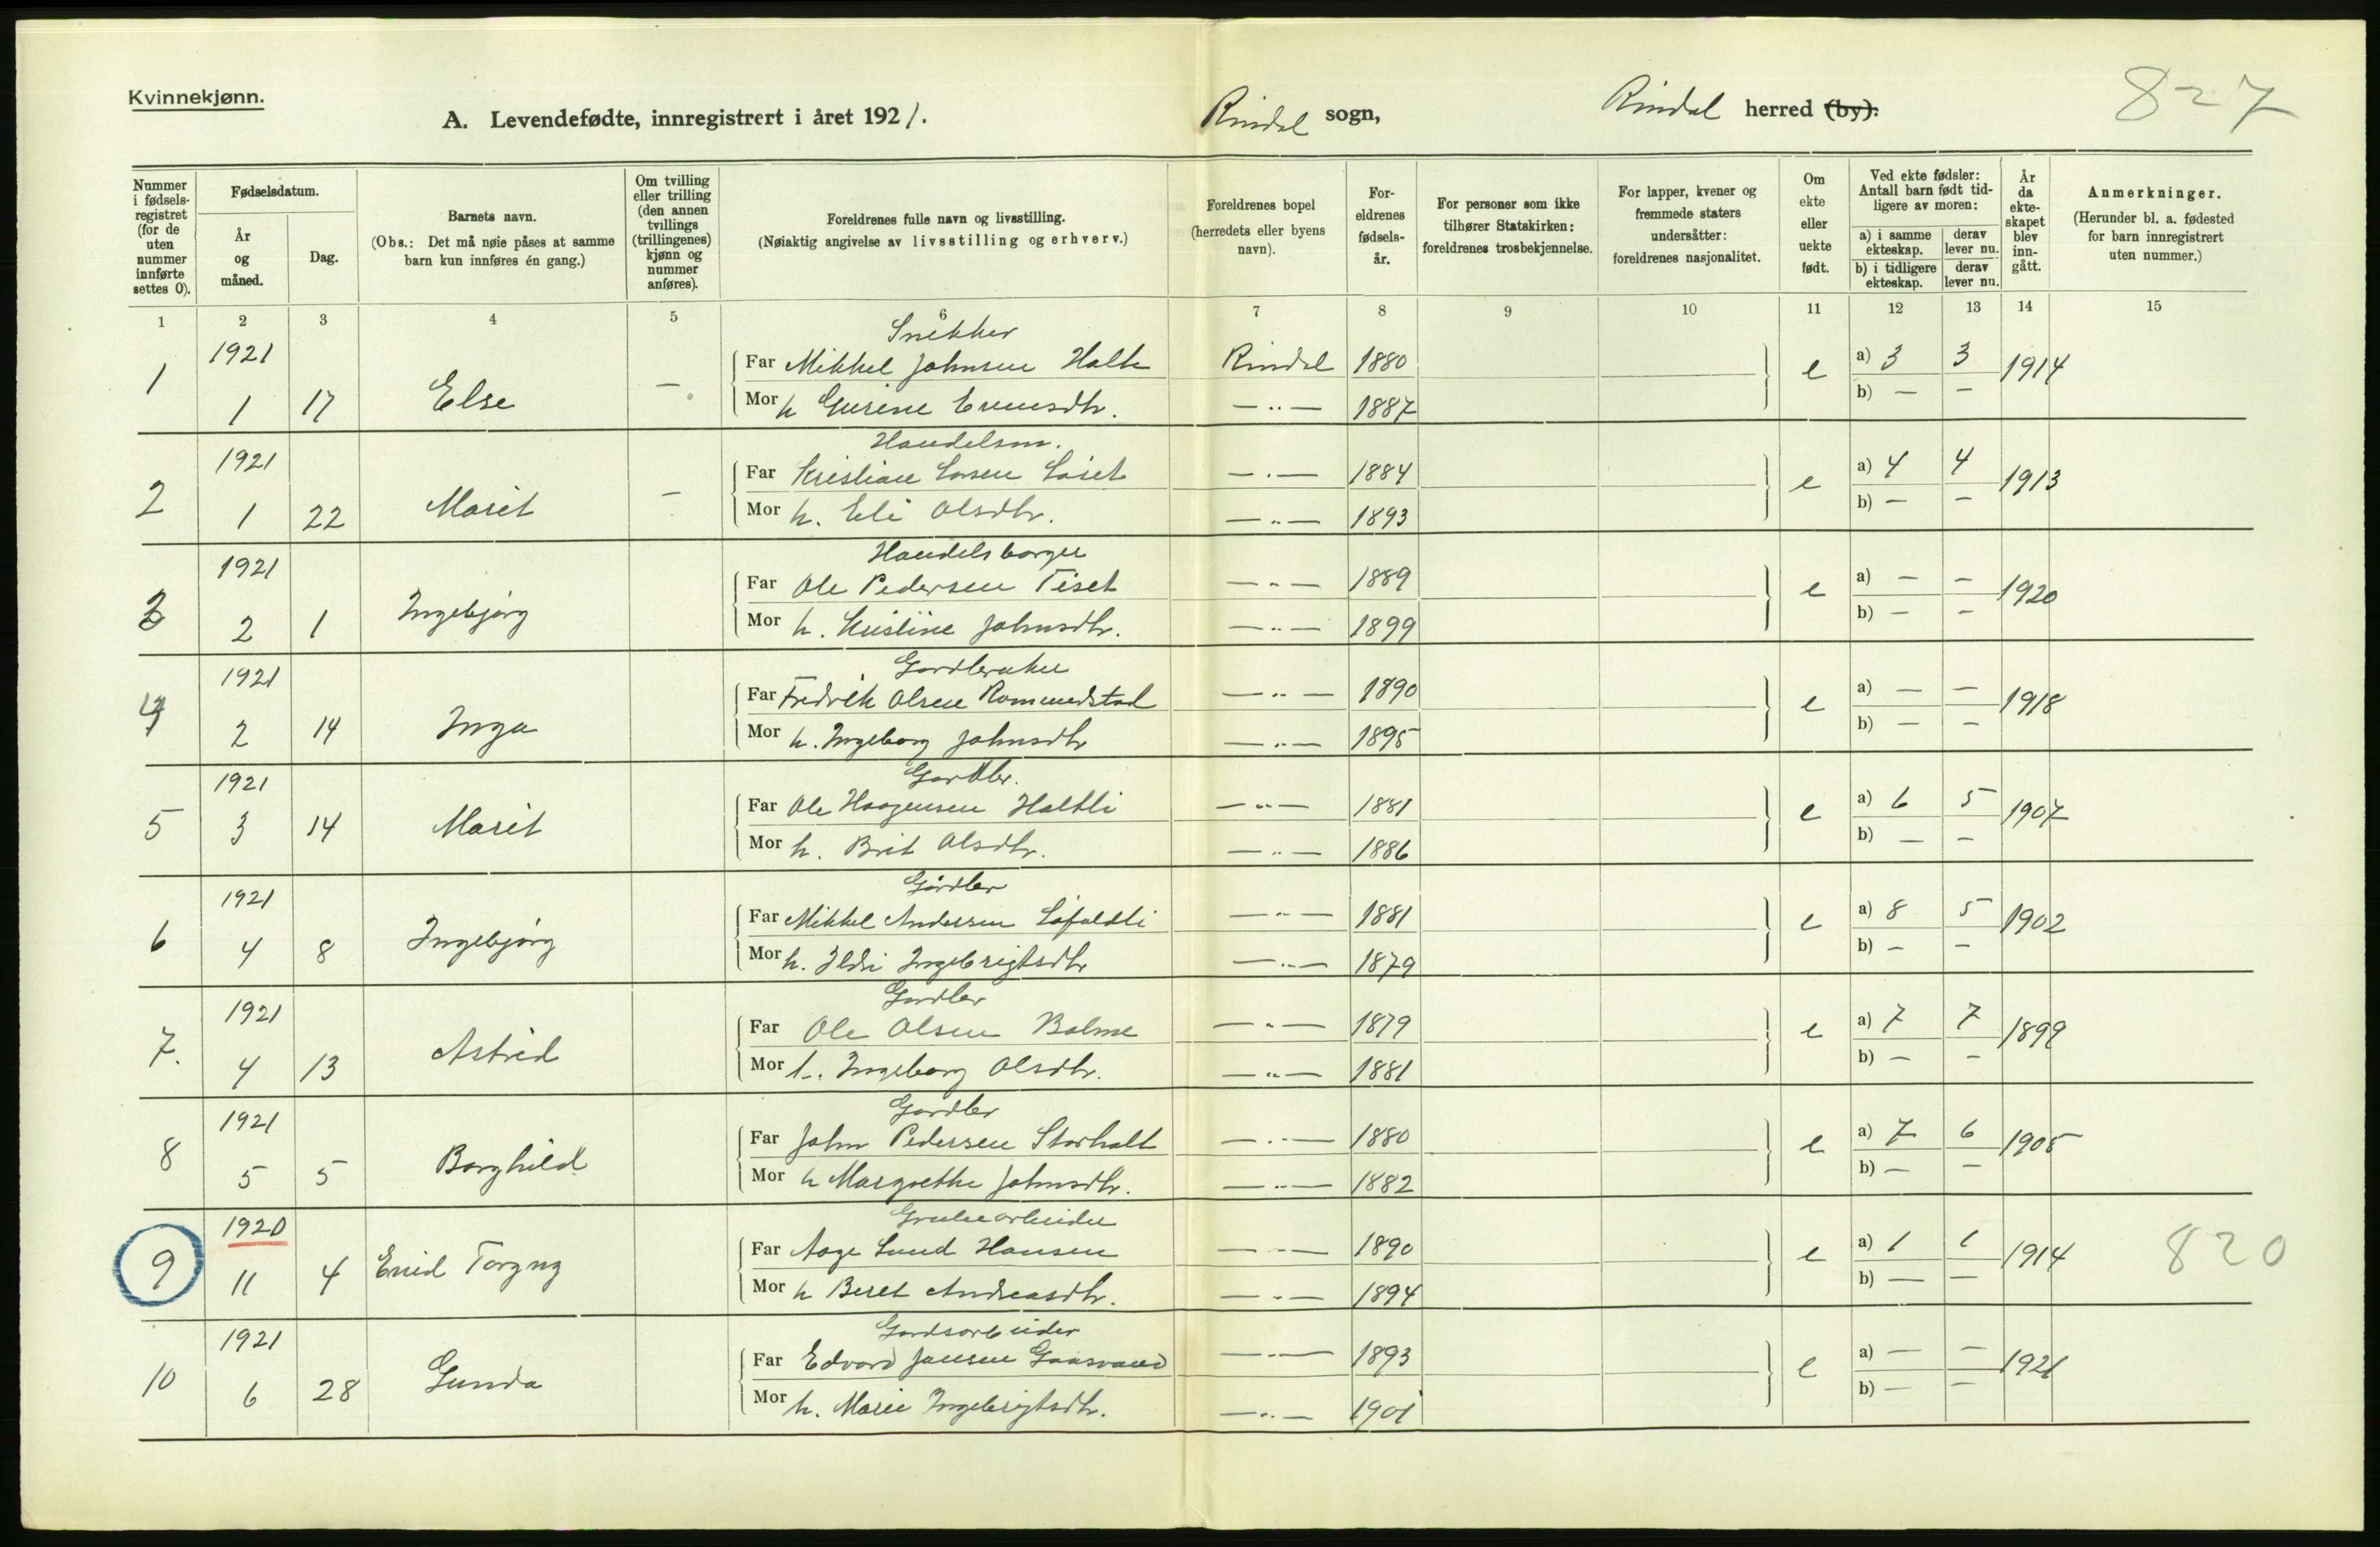 Kvinnekjønn.
A. Levendefødte, innregistrert i året 1921.
Rindal sogn,
Rindal herred (by).
827
Nummer i fødsels-registret (for de uten nummer innførte settes 0).
Fødselsdatum.
År og måned.
Dag.
Barnets navn.
(Obs.: Det må nøie påses at samme barn kun innføres én gang.)
Om tvilling eller trilling (den annen tvillings (trillingenes) kjønn og nummer anføres).
Foreldrenes fulle navn og livsstilling.
(Nøiaktig angivelse av livsstilling og erhverv.)
Foreldrenes bopel (herredets eller byens navn).
For-eldrenes fødsels-år.
For personer som ikke tilhører Statskirken: foreldrenes trosbekjennelse.
For lapper, kvener og fremmede staters undersåtter: foreldrenes nasjonalitet.
Om ekte eller uekte født.
Ved ekte fødsler: Antall barn født tid-ligere av moren:
a) i samme ekteskap. derav lever nu.
b) i tidligere ekteskap. derav lever nu.
År da ekte-skapet blev inn-gått.
Anmerkninger.
(Herunder bl. a. fødested for barn innregistrert uten nummer.)
1 2 3 4 5 6 7 8 9 10 11 12 13 14 15
Snekker
1 1921 1 17 Else —
Far Mikkel Johnsen Halte Rindal 1880 e a) 3 3 1914
Mor h Gurine Evensdtr. —"— 1887 b) — —
Handelsm.
2 1921 1 22 Marit —
Far Kristian Larsen Løset —"— 1884 e a) 4 4 1913
Mor h. Eli Olsdtr. —"— 1893 b) — —
Handelsborger
3 1921 2 1 Ingebjørg
Far Ole Pedersen Tiset —"— 1889 e a) — — 1920
Mor h. Kristine Johnsdtr. —"— 1899 b) — —
Gardbruker
4 1921 2 14 Inga
Far Fredrik Olsen Romundstad —"— 1890 e a) — — 1918
Mor h. Ingeborg Johnsdtr —"— 1895 b) — —
Gardbr.
5 1921 3 14 Marit
Far Ole Haagensen Haltli —"— 1881 e a) 6 5 1907
Mor h. Brit Olsdtr. —"— 1886 b) — —
Gårdbr
6 1921 4 8 Ingebjørg
Far Mikkel Andersen Løfaldli —"— 1881 e a) 8 5 1902
Mor h. Ildri Ingebrigtsdtr —"— 1879 b) — —
Gardbr
7. 1921 4 13 Astrid
Far Ole Olsen Bolme —"— 1879 e a) 7 7 1899
Mor h. Ingeborg Olsdtr. —"— 1881 b) — —
Gardbr
8 1921 5 5 Borghild
Far John Pedersen Storholt —"— 1880 e a) 7 6 1905
Mor h Margrethe Johnsdtr. —"— 1882 b) — —
Grubearbeider
9 1920 11 4 Enid Torgny
Far Aage Lund Hansen —"— 1890 e a) 1 1 1914 820
Mor h Beret Andreasdtr. —"— 1894 b) — —
Gardsarbeider
10 1921 6 28 Gunda
Far Edvard Jensen Gaasvand —"— 1893 e a) — — 1921
Mor h. Marie Ingebrigtsdtr. —"— 1901 b) — —